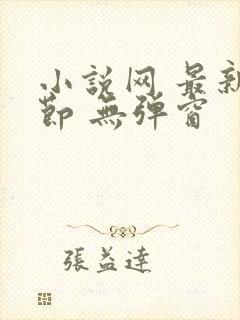 小説网 最新
節 無弹窗
張益達